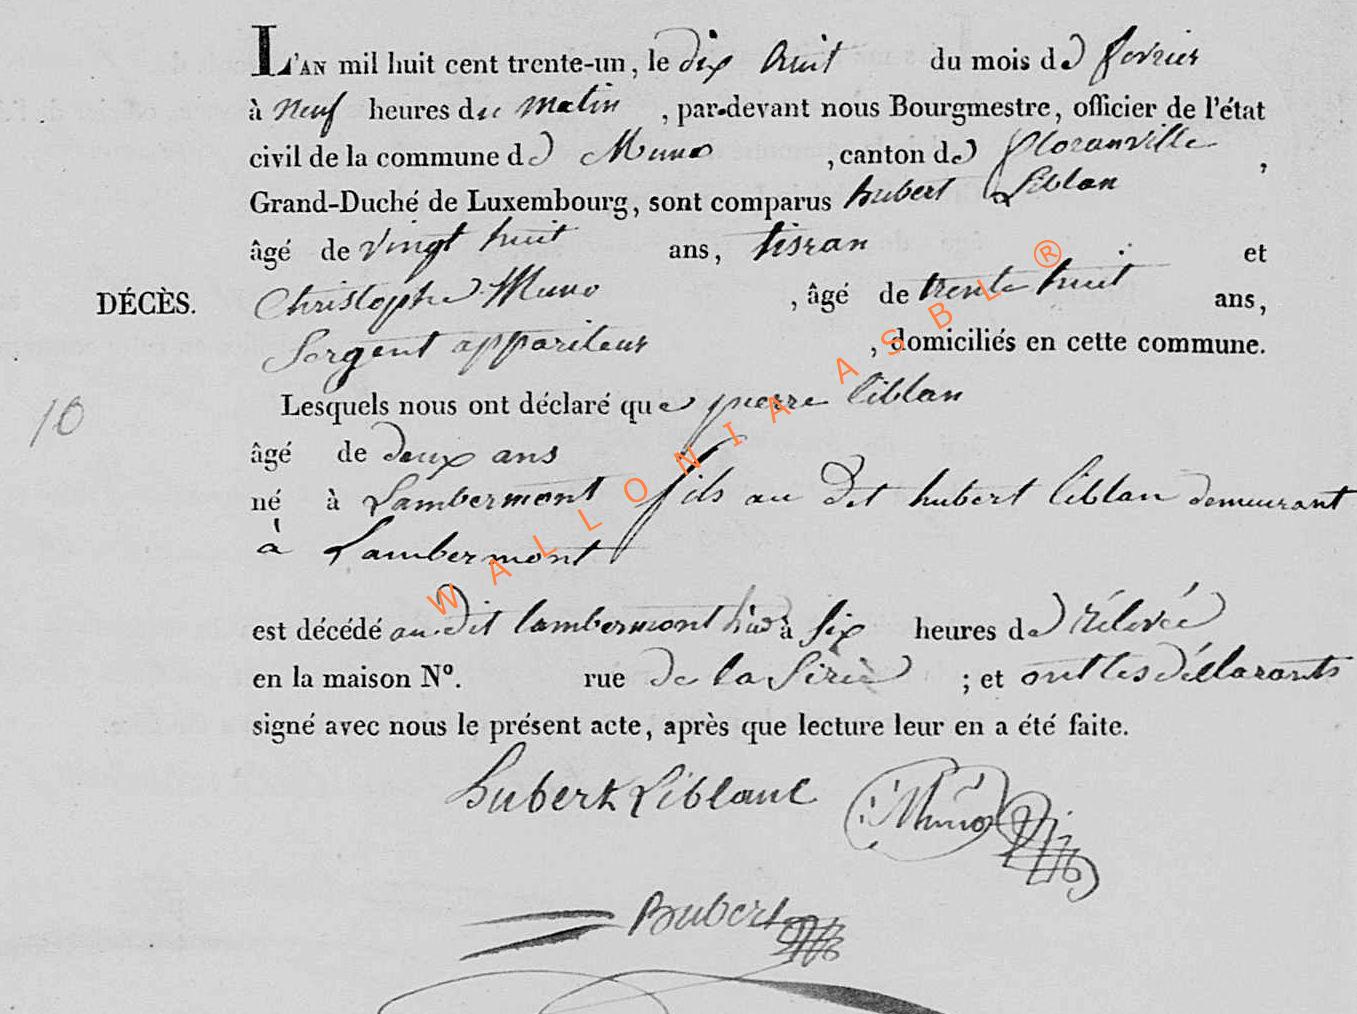 L'AN mil huit cent trente-un, le dix huit du mois de fevrier
à neuf heures du matin, par-devant nous Bourgmestre, officier de l'état
civil de la commune de Muno, canton de floranville,
Grand-Duché de Luxembourg, sont comparus hubert Liblan
âgé de vingt huit ans, tisran et
DÉCÈS. Christophe Muno, âgé de trente huit ans,
Sergent appariteur, domiciliés en cette commune.
Lesquels nous ont déclaré que pierre liblan
10
âgé de deux ans
né à Lambermont fils au Dit hubert liblan demeurant
à Lambermont
est décédé au Dit lambermont hier à six heures de rélevée
en la maison N°. rue de la ; et ont les déclarants
signé avec nous le présent acte, après que lecture leur en a été faite.
hubert Liblanc Muno
Bubert
WALLONIA ASBL ®